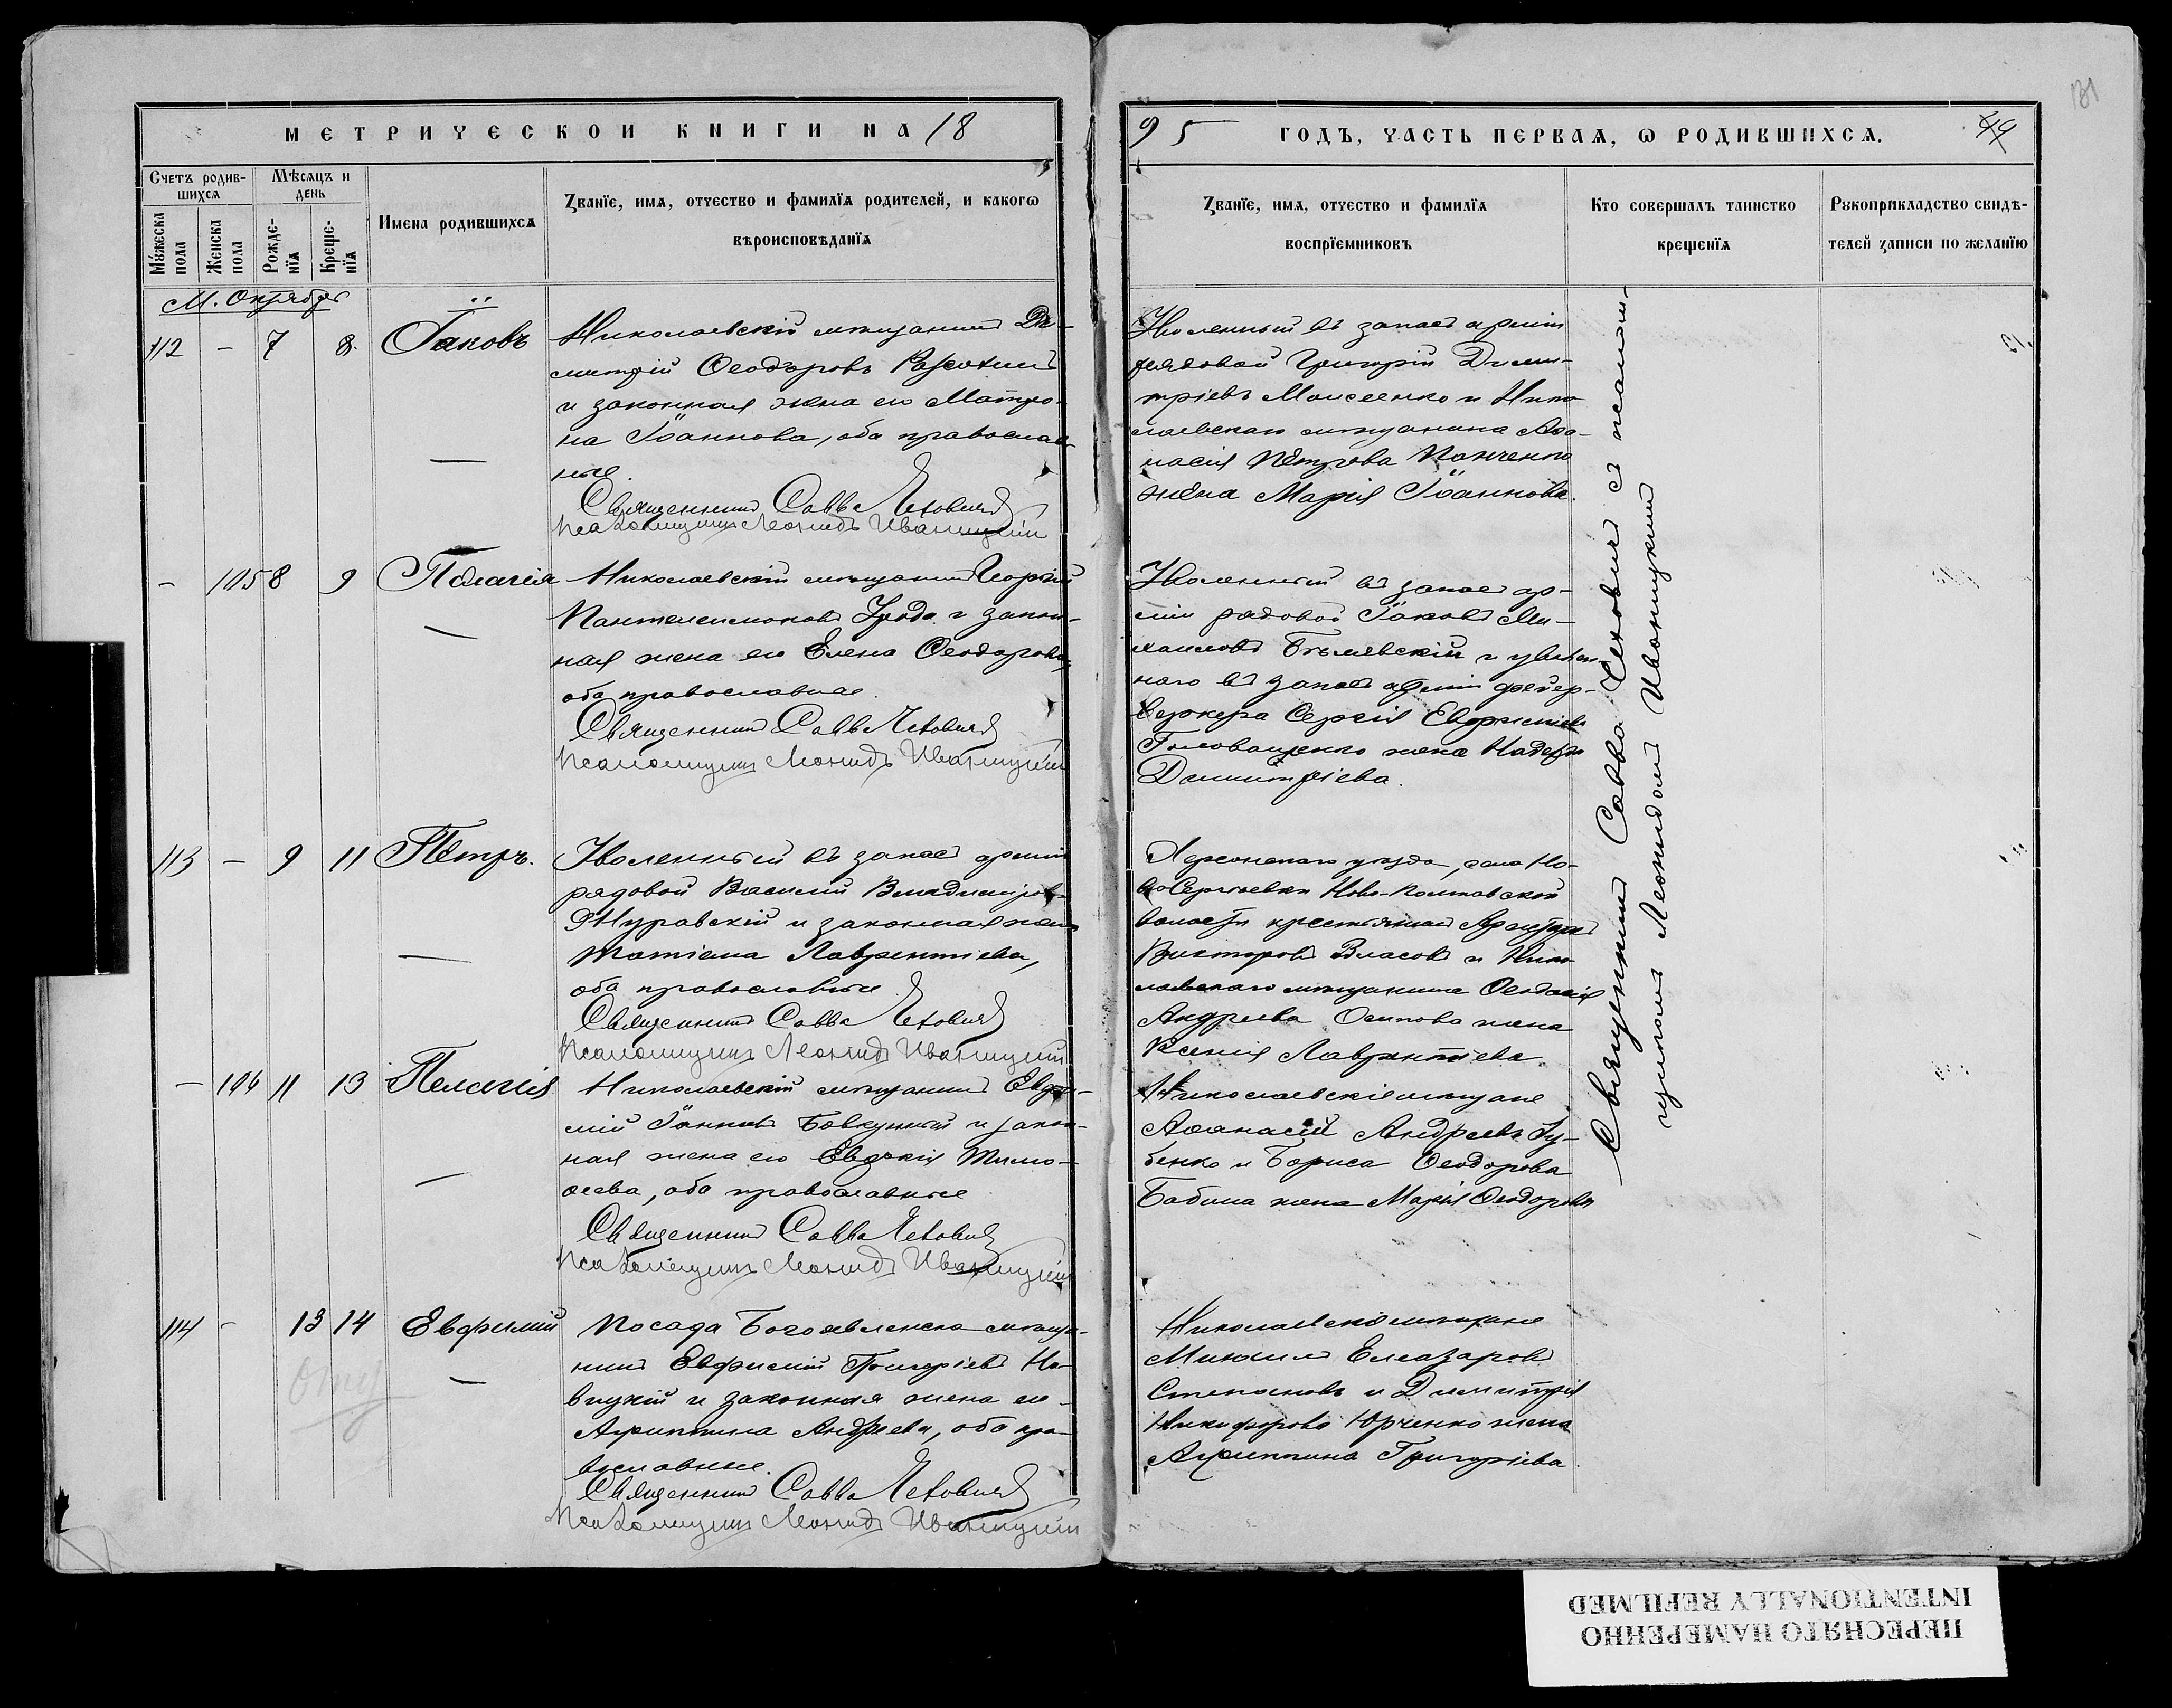 МЕТРИЧЕСКОЙ КНИГИ НА 18
95 ГОДЪ, ЧАСТЬ ПЕРВАѦ, Ѡ РОДИВШИХСѦ.
131
Счетъ родив-
шихсѧ
Мѣсѧцъ и
день
Мужеска
пола
Женска
пола
Рожде-
нїѧ
Креще-
нїѧ
Имена родившихсѧ
Званїе, имѧ, отчество и фамилїѧ родителей, и какогѡ
вѣроисповѣданїѧ
Званїе, имѧ, отчество и фамилїѧ
воспрїемниковъ
Кто совершалъ таинство
крещенїѧ
Рукоприкладство свидѣ-
телей записи по желанїю
М. Октябрь
112 – 7 8. Іаковъ
Николаевскій мѣщанинъ Ди-
митрій Ѳеодоровъ
и законная жена его Матро-
на Іоаннова, оба православ-
ные.
Священникъ Савва Чеховичъ
Псаломщикъ Леонидъ Иваницкій
Уволенный въ запасъ арміи
рядовой Григорій Дими-
тріевъ Моисеенко и Нико-
лаевскаго мѣщанина Аѳа-
насія Петрова Панченко
жена Марія Іоаннова.
– 105 8 9 Пелагія
Николаевскій мѣщанинъ Георгій
Пантелеимоновъ и закон-
ная жена его Елена Ѳеодорова,
оба православные.
Священникъ Савва Чеховичъ
Псаломщикъ Леонидъ Иваницкій
Уволенный въ запасъ ар-
міи рядовой Іаковъ Ми-
хаиловъ Бѣлявскій и уволен-
наго въ запасъ арміи фейер-
веркера Сергія Евфиміева
Головащенко жена Надежда
Димитріева.
113 – 9 11 Петръ.
Уволенный въ запасъ арміи
рядовой Василій Владиміровъ
Журавскій и законная жена
Татіана Лаврентіева,
оба православные.
Священникъ Савва Чеховичъ
Псаломщикъ Леонидъ Иваницкій
Херсонскаго уѣзда, села Но-
во-Сергѣевки Ново-Полтавской
волости крестьянинъ
Викторовъ Власовъ и Нико-
лаевскаго мѣщанина Ѳеодосія
Андреева Осипова жена
Ксенія Лаврентіева.
– 106 11 13 Пелагія
Николаевскій мѣщанинъ Евѳи-
мій Іоанновъ Бовкунный и закон-
ная жена его Евдокія Тимо-
ѳеева, оба православные
Священникъ Савва Чеховичъ
Псаломщикъ Леонидъ Иваницкій
Николаевскіе мѣщане
Аѳанасій Андреевъ Зу-
бенко и Бориса Ѳеодорова
Бабина жена Марія Ѳеодорова
114 – 13 14 Евфимій
Посада Богоявленска мѣща-
нинъ Евфимій Григоріевъ Но-
вицкій и законная жена его
Агриппина Андреева, оба пра-
вославные.
Священникъ Савва Чеховичъ
Псаломщикъ Леонидъ Иваницкій
Николаевскіе мѣщане
Михаилъ Елеазаровъ
Степановъ и Димитрія
Никифорова Юрченко жена
Агриппина Григоріева.
Священникъ Савва Чеховичъ съ псалом-
щикомъ Леонидомъ Иваницкимъ
ПЕРЕСНЯТО НАМЕРЕННО
INTENTIONALLY REFILMED